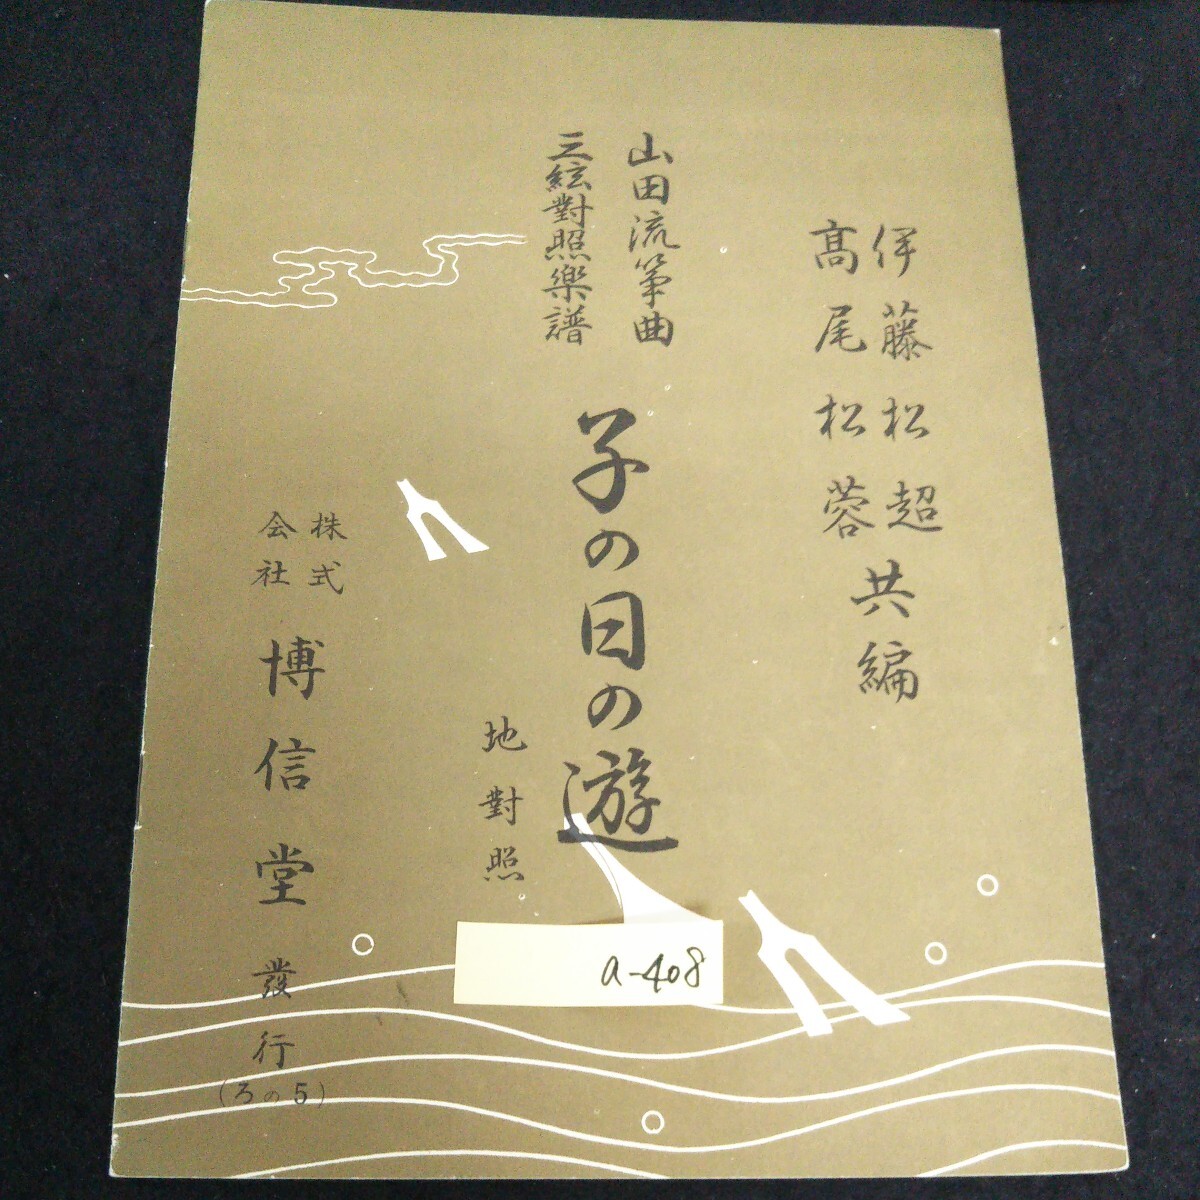 伊藤松超
高尾松蓉
共編
山田流箏曲
三絃對照樂譜
子の日の遊
地對照
株式
会社
博信堂發行
(ろの5)
a-408